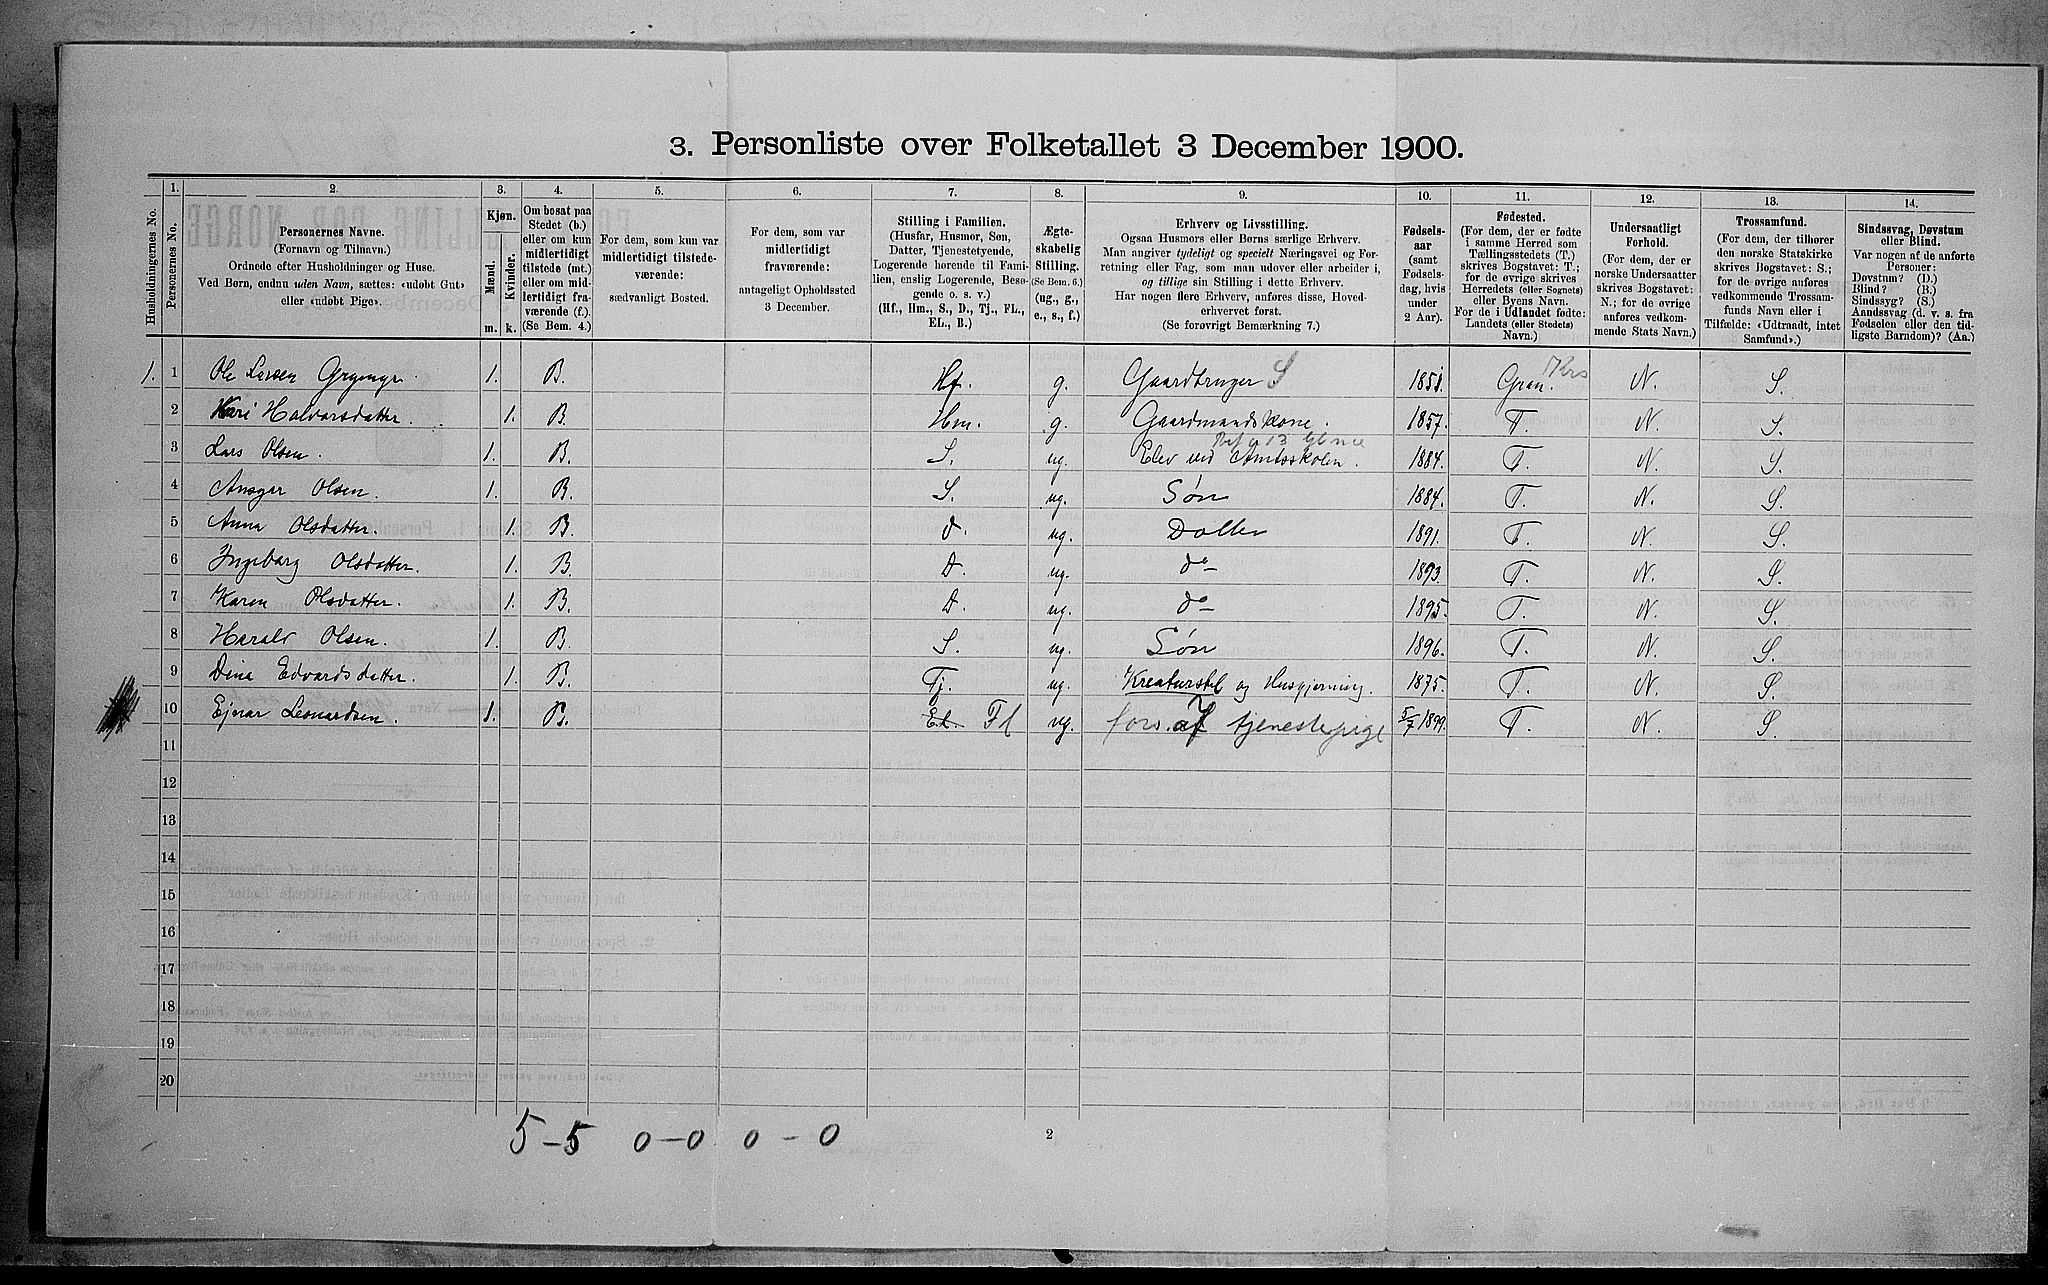 3. Personliste over Folketallet 3 December 1900.
1. 2. 3. 4. 5. 6. 7. 8. 9. 10. 11. 12. 13. 14.
Husholdningernes No.
Personernes No.
Personernes Navne.
(Fornavn og Tilnavn.)
Ordnede efter Husholdninger og Huse.
Ved Børn, endnu uden Navn, sættes: «udobt Gut»
eller «udobt Pige».
Kjøn.
Mænd.
Kvinder.
m. k.
Om bosat paa
Stedet (b.)
eller om kun
midlertidigt
tilstede (mt.)
eller om mid-
lertidigt fra-
værende (f.).
(Se Bem. 4.)
For dem, som kun var
midlertidigt tilstede-
værende:
sædvanligt Bosted.
For dem, som var
midlertidigt
fraværende:
antageligt Opholdssted
3 December.
Stilling i Familien.
(Husfar, Husmor, Søn,
Datter, Tjenestetyende,
Logerende hørende til Fami-
lien, enslig Logerende, Besø-
gende o. s. v.)
(Hf., Hm., S., D., Tj., FL.,
EL., B.)
Ægte-
skabelig
Stilling.
(Se Bem. 6.)
(ug., g.,
e., s., f.)
Erhverv og Livsstilling.
Ogsaa Husmors eller Børns særlige Erhverv.
Man angiver tydeligt og specielt Næringsvei og For-
retning eller Fag, som man udover eller arbeider i,
og tillige sin Stilling i dette Erhverv.
Har nogen flere Erhverv, anføres disse, Hoved-
erhvervet først.
(Se forøvrigt Bemærkning 7.)
Fødsels-
aar
(samt
Fødsels-
dag, hvis
under
2 Aar).
Fødested.
(For dem, der er fødte
i samme Herred som
Tællingsstedets (T.)
skrives Bogstavet: T.;
for de øvrige skrives
Herredets (eller Sognets)
eller Byens Navn.
For de i Udlandet fødte:
Landets (eller Stedets)
Navn.)
Undersaatligt
Forhold.
(For dem, der er
norske Undersaatter
skrives Bogstavet:
N.; for de øvrige
anføres vedkom-
mende Stats Navn.)
Trossamfund.
(For dem, der tilhører
den norske Statskirke
skrives Bogstavet: S.;
for de øvrige anføres
vedkommende Trossam-
funds Navn eller i
Tilfælde: «Udtraadt, intet
Samfund».)
Sindssvag, Døvstum
eller Blind.
Var nogen af de anførte
Personer:
Døvstum? (D.)
Blind? (B.)
Sindssyg? (S.)
Aandssvag (d. v. s. fra
Fødselen eller den tid-
ligste Barndom)? (Aa.)
1. 1 Ole Larsen Grymyr 1. B. Hf. g. Gaardbruger S 1851. Gran. N. S.
2 Kari Halvorsdatter. 1. B. Hm. g. Gaardmandskone. 1857. T. N. S.
3 Lars Olsen. 1. B. S. ug. Elev ved Amtsskolen. 1884. T. N. S.
4 Ansgar Olsen. 1. B. S. ug. Søn 1884. T. N. S.
5 Anna Olsdatter. 1. B. d. ug. Datter 1891. T. N. S.
6 Ingeborg Olsdatter. 1. B. D. ug. do 1893. T. N. S.
7 Karen Olsdatter. 1. B. D. ug. do 1895. T. N. S.
8 Harald Olsen. 1. B. S. ug. Søn 1896. T. N. S.
9 Dina Edvardsdatter. 1. B. Tj. ug. Kreaturstel og Husgjerning. 1875. T. N. S.
10 Ejnar Leonardsen. 1. B. El. Fl ug. fors. af tjenestepige 5/7 1899. T. N. S.
11
12
13
14
15
16
17
18
19
20
5-5 0-0 0-0
2